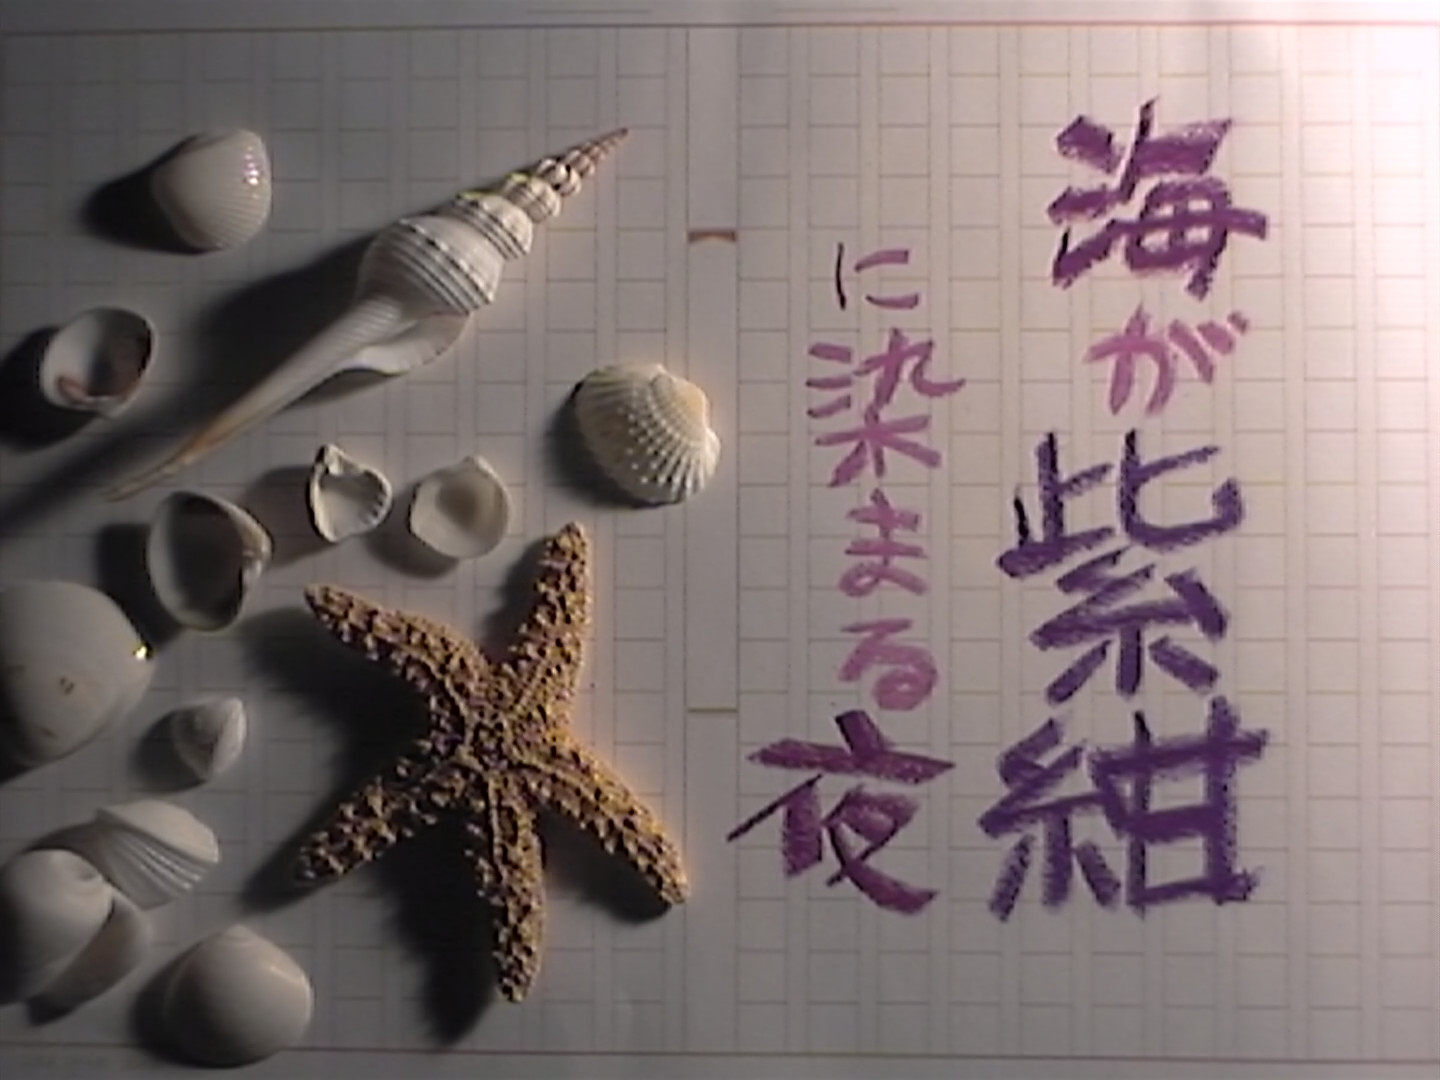 海が紫紺
に染まる夜